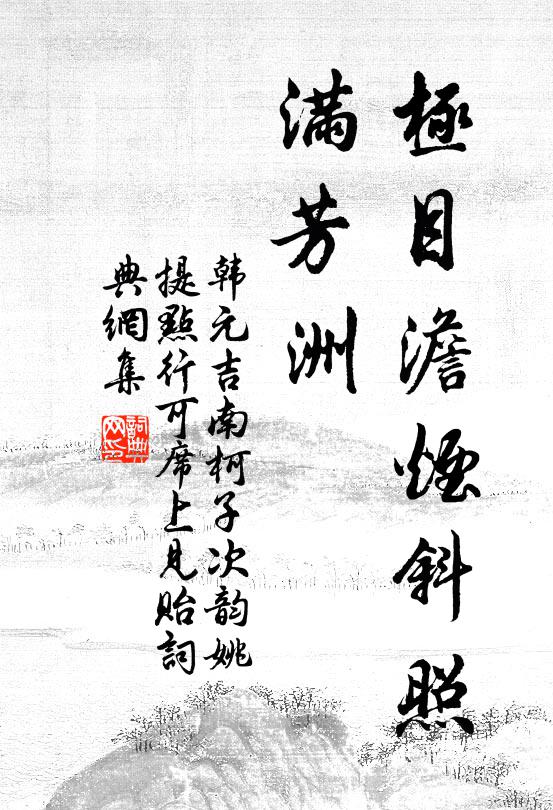 極目澹煙斜照
滿芳洲
韩元吉南柯子次韵姚
提點行可席上見貽詞
典網集
詞典网